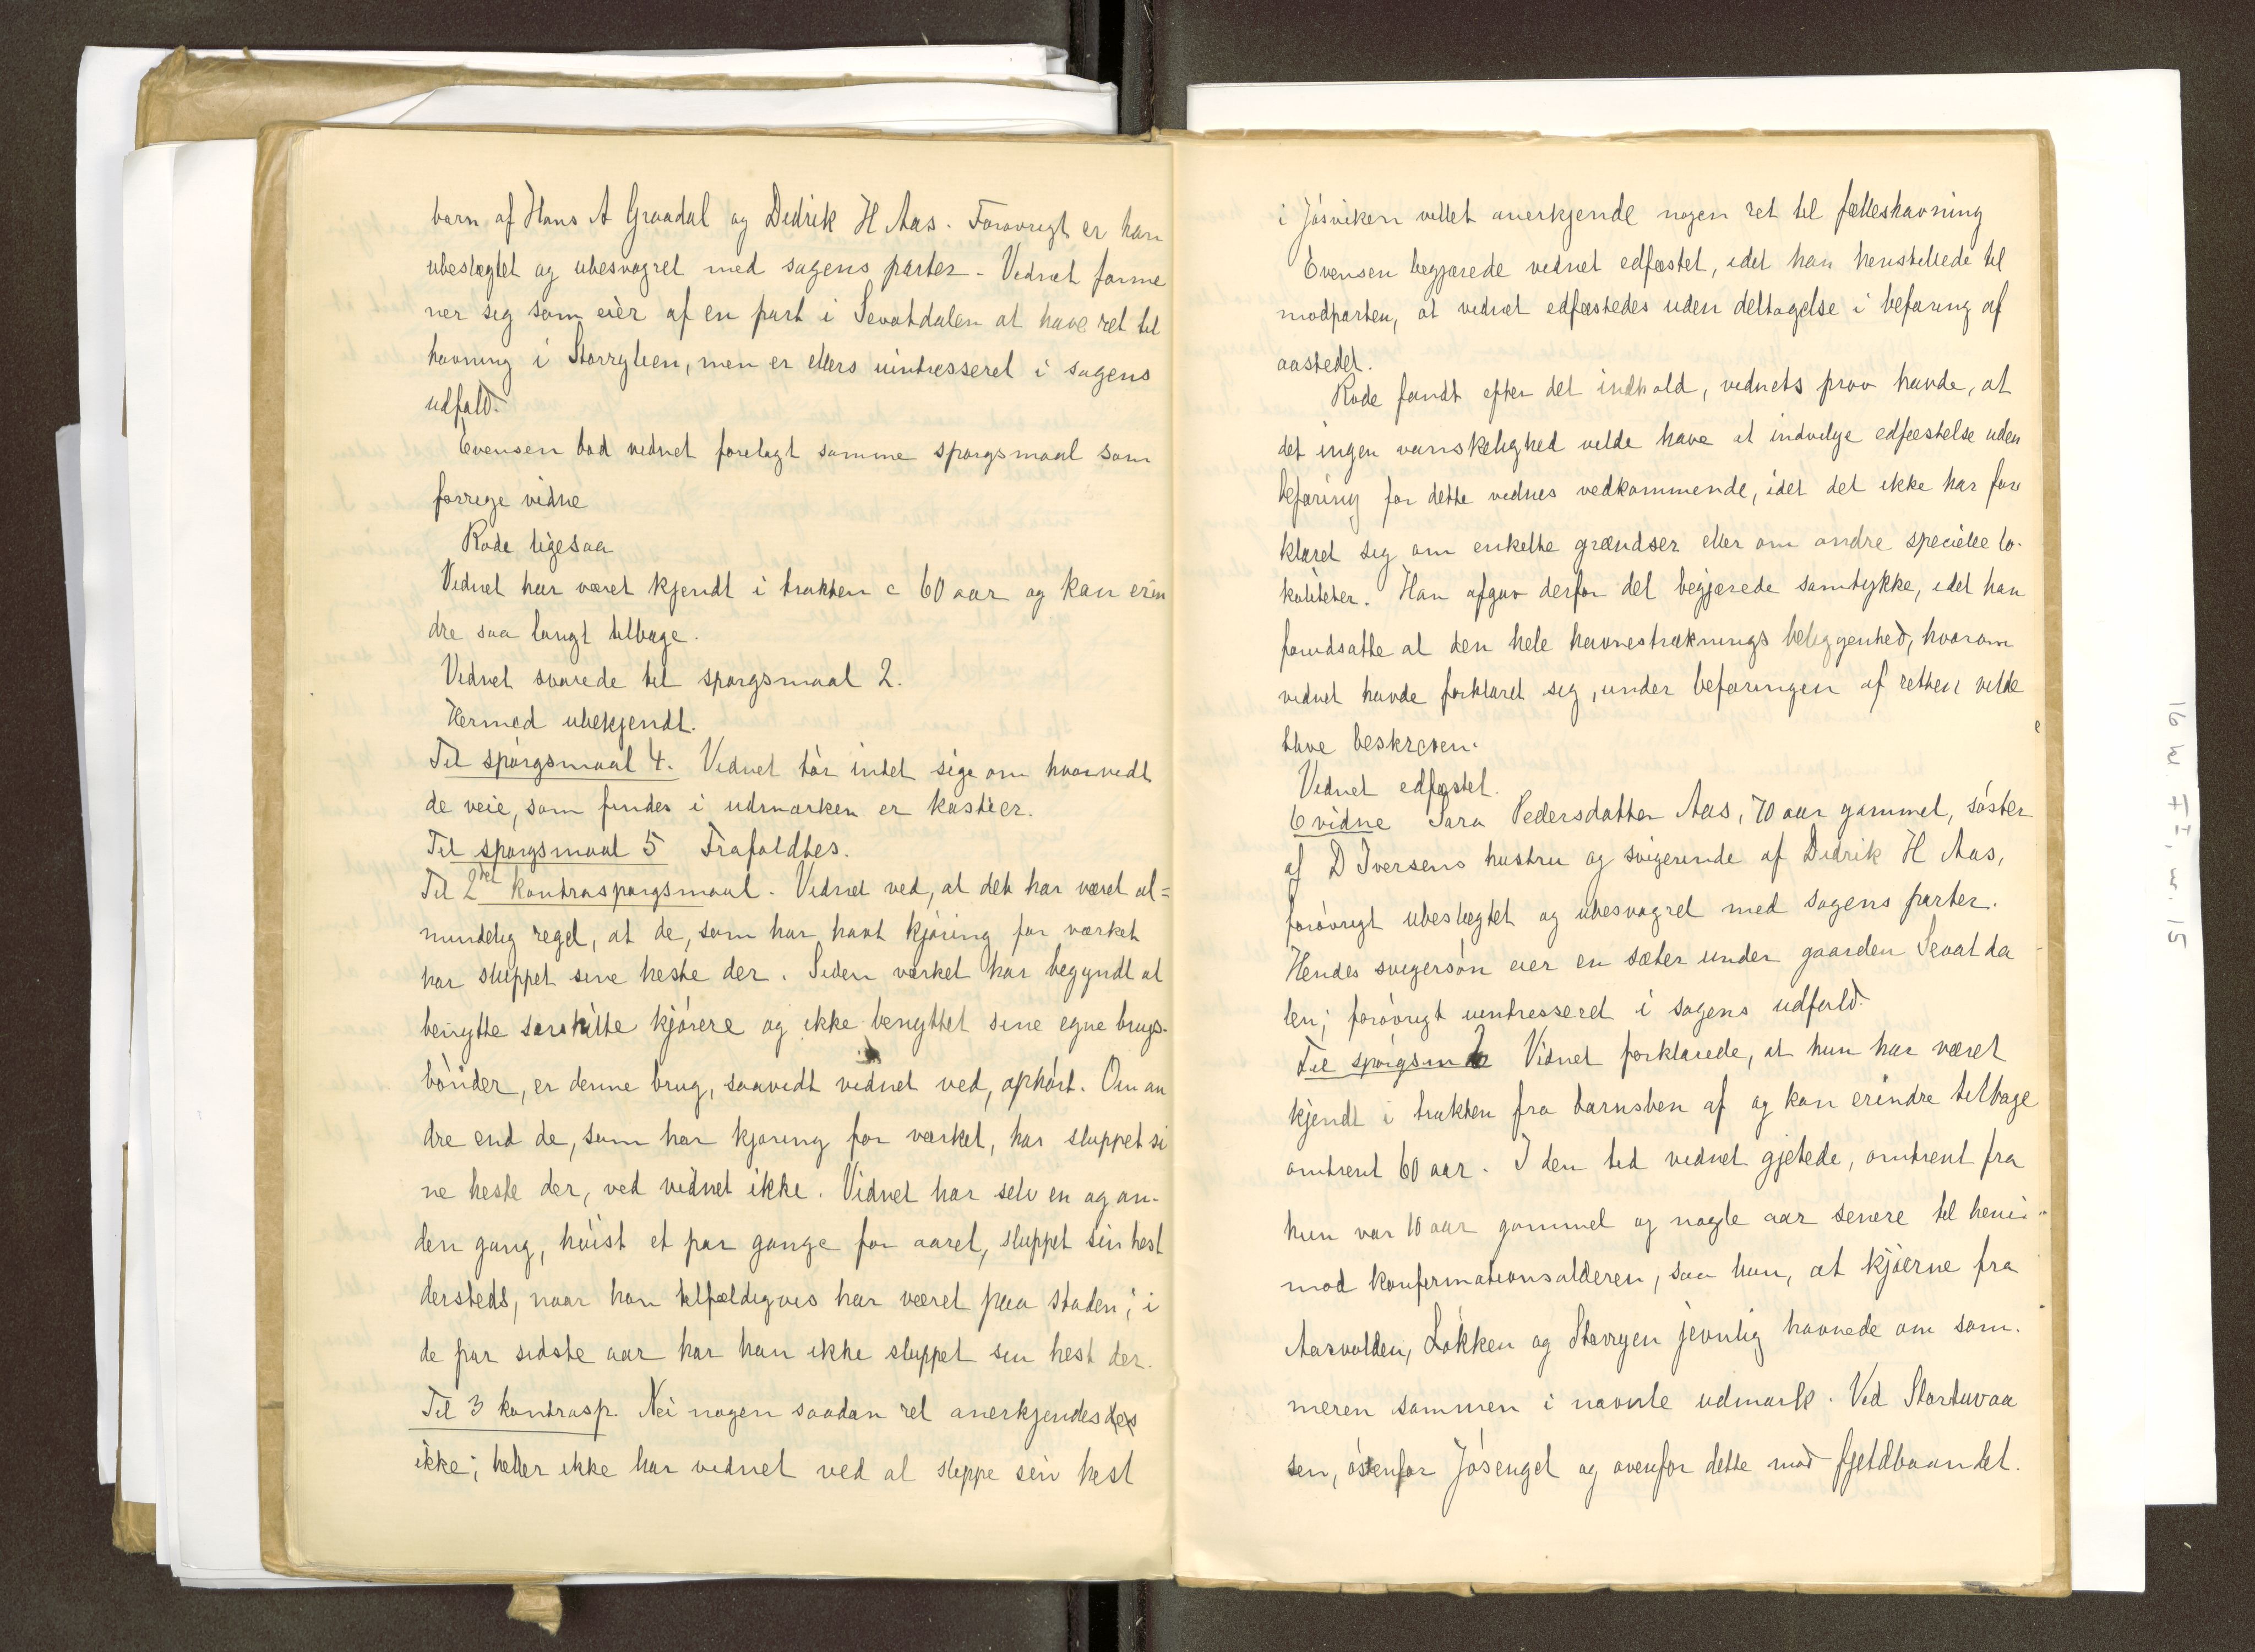 barn af Hans A Graadal og Didrik H Aas. Forøvrigt er han
ubeslægtet og ubesvogret med sagens parter. Vidnet forme
ner sig som eier af en part i Sevatdalen at have ret til
havning i Storrylien, men er ellers uintresseret i sagens
udfald.
Evensen bad vidnet forelagt samme spørgsmaal som
forrige vidne
Rode ligesaa
Vidnet har været kjendt i trakten c 60 aar og kan erin
dre saa langt tilbage.
Vidnet svarede til spørgsmaal 2.
Hermed ubekjendt.
Til spørgsmaal 4. Vidnet tør intet sige om hvorvidt
de veie, som findes i udmarken er kastier.
Til spørgsmaal 5 Frafaldtes.
Til 2det kontraspørgsmaal. Vidnet ved, at det har været al=
mindelig regel, at de, som har havt kjøring for værket
har sluppet sine heste der. Siden værket har begyndt at
benytte særskilte kjørere og ikke benyttet sine egne brugs-
bønder, er denne brug, saavidt vidnet ved, ophørt. Om an
dre end de, som har kjøring for værket, har sluppet si
ne heste der, ved vidnet ikke. Vidnet har selv en og an-
den gang, høist et par gange for aaret, sluppet sin hest
dersteds, naar han tilfældigvis har været paa staden; i
de par sidste aar har han ikke sluppet sin hest der.
Til 3 kontrasp. Nei nogen saadan ret anerkjendes des
ikke; heller ikke har vidnet ved at slippe sin hest
i Jøsviken villet anerkjende nogen ret til fælleshavning
Evensen begjærede vidnet edfæstet, idet han henstillede til
modparten, at vidnet edfæstedes uden deltagelse i befaring af
aastedet.
Rode fandt efter det indhold, vidnets prov havde, at
det ingen vanskelighed vilde have at indvilge edfæstelse uden
befaring for dette vidnes vedkommende, idet det ikke har for
klaret sig om enkelte grændser eller om andre specielle lo-
kaliteter. Han afgav derfor det begjærede samtykke, idet han
forudsatte at den hele havnestræknings beliggenhed, hvorom
vidnet havde forklaret sig, under befaringen af retten vilde
blive beskreven.
Vidnet edfæstet.
6 vidne Sara Pedersdatter Aas, 70 aar gammel, søster
af D Iversens hustru og svigerinde af Didrik H Aas,
forøvrigt ubeslægtet og ubesvogret med sagens parter.
Hendes svigersøn eier en sæter under gaarden Sevat da
len; forøvrigt uintresseret i sagens udfald.
Til spørgsm 2 Vidnet forklarede, at hun har været
kjendt i trakten fra barnsben af og kan erindre tilbage
omtrent 60 aar. I den tid vidnet gjetede, omtrent fra
hun var 10 aar gammel og nogle aar senere til henii-
mod konfirmationsalderen, saa hun, at kjøerne fra
Aasvolden, Løkken og Storryen jevnlig havnede om som-
meren sammen i nævnte udmark. Ved Stortuvaa
sen, østenfor Jøsenget og ovenfor dette mod fjeldbaandet.
16 M FI, nr. 15